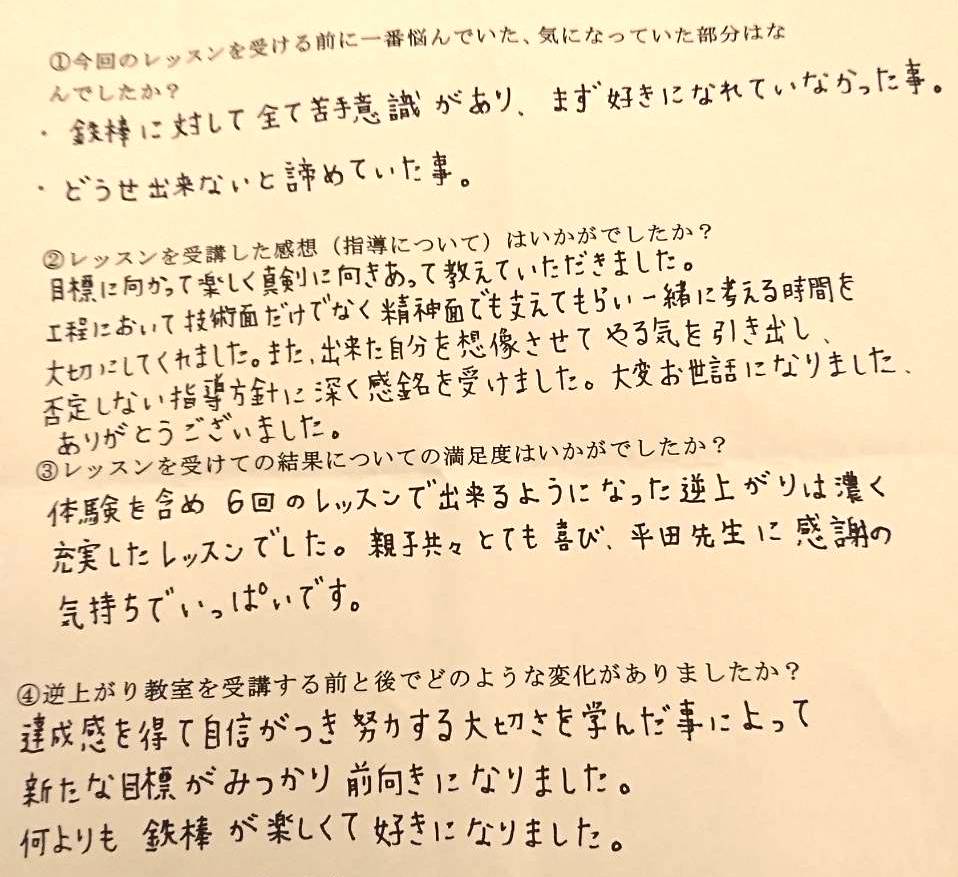 ①今回のレッスンを受ける前に一番悩んでいた、気になっていた部分はな
んでしたか？
・鉄棒に対して全て苦手意識があり、まず好きになれていなかった事。
・どうせ出来ないと諦めていた事。
②レッスンを受講した感想（指導について）はいかがでしたか？
目標に向かって楽しく真剣に向きあって教えていただきました。
工程において技術面だけでなく精神面でも支えてもらい一緒に考える時間を
大切にしてくれました。また、出来た自分を想像させてやる気を引き出し、
否定しない指導方針に深く感銘を受けました。大変お世話になりました、
ありがとうございました。
③レッスンを受けての結果についての満足度はいかがでしたか？
体験を含め6回のレッスンで出来るようになった逆上がりは濃く
充実したレッスンでした。親子共々とても喜び、平田先生に感謝の
気持ちでいっぱいです。
④逆上がり教室を受講する前と後でどのような変化がありましたか？
達成感を得て自信がつき努力する大切さを学んだ事によって
新たな目標がみつかり前向きになりました。
何よりも鉄棒が楽しくて好きになりました。